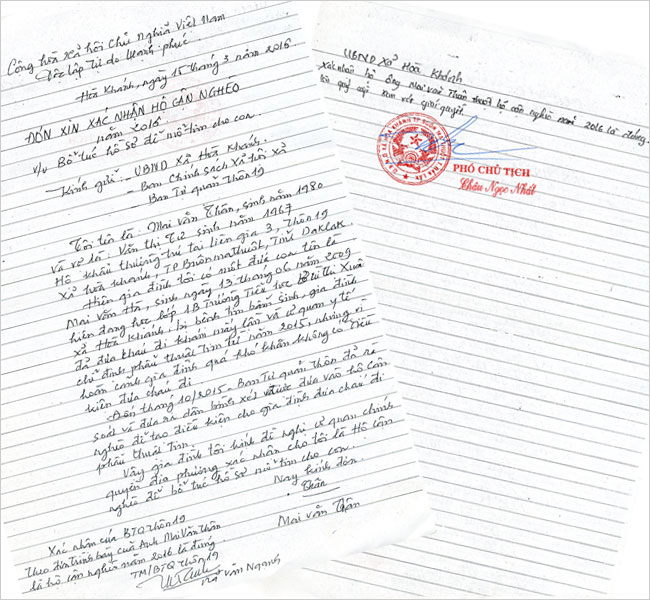 Cộng hòa xã hội Chủ Nghĩa Việt Nam
Độc lập Tự do Hạnh phúc
Hoà Khánh, ngày 15 tháng 3 năm 2016
ĐƠN XIN XÁC NHẬN HỘ CẬN NGHÈO
năm 2016
v/v Bổ túc hồ sơ để mổ tim cho con.
Kính gửi: - UBND Xã Hoà Khánh.
- Ban Chính Sách Xã hội xã
Ban Tự quản Thôn 19
Tôi tên là: Mai Văn Thân, sinh năm 1980
và vợ là: Văn Thị Tư sinh năm 1967
Hộ khẩu thường trú tại liên gia 3, Thôn 19
xã hoà Khánh, TP Buônmathuột, Tỉnh Daklak
Hiện gia đình tôi có một đứa con tên là
Mai Văn Hà, sinh ngày 13 tháng 06 năm 2009
hiện đang học lớp 1B Trường Tiểu học Thị Xuân
xã Hoà Khánh, bị bệnh tim bẩm sinh, gia đình
đã đưa cháu đi khám mấy lần và cơ quan y tế
chỉ định phẩu thuật Tim từ năm 2015, nhưng vì
hoàn cảnh gia đình quá khó khăn không có điều
kiện đưa cháu đi
Đến tháng 10/2015 - Ban Tự quản Thôn đã rà
soát và đưa ra dân bình xét và được đưa vào hộ Cận
nghèo để tạo điều kiện cho gia đình đưa cháu đi
phẩu thuật Tim.
Vậy gia đình tôi kính đề nghị cơ quan chính
quyền địa phương xác nhận cho tôi là Hộ Cận
nghèo để bổ túc hồ sơ mổ tim cho con.
Nay kính đơn
Thân
Mai Văn Thận
Xác nhận của BTQ thôn 19
Theo đơn trình bày của Anh Mai Văn Thân
là hộ cận nghèo năm 2016 là đúng.
TM/BTQ thôn 19
Văn Ngạnh
UBND Xã Hoà Khánh
Xác nhận hộ ông Mai Văn Thân thuộc hộ cận nghèo năm 2016 là đúng.
quý cấp xem xét giải quyết
PHÓ CHỦ TỊCH
Châu Ngọc Nhất